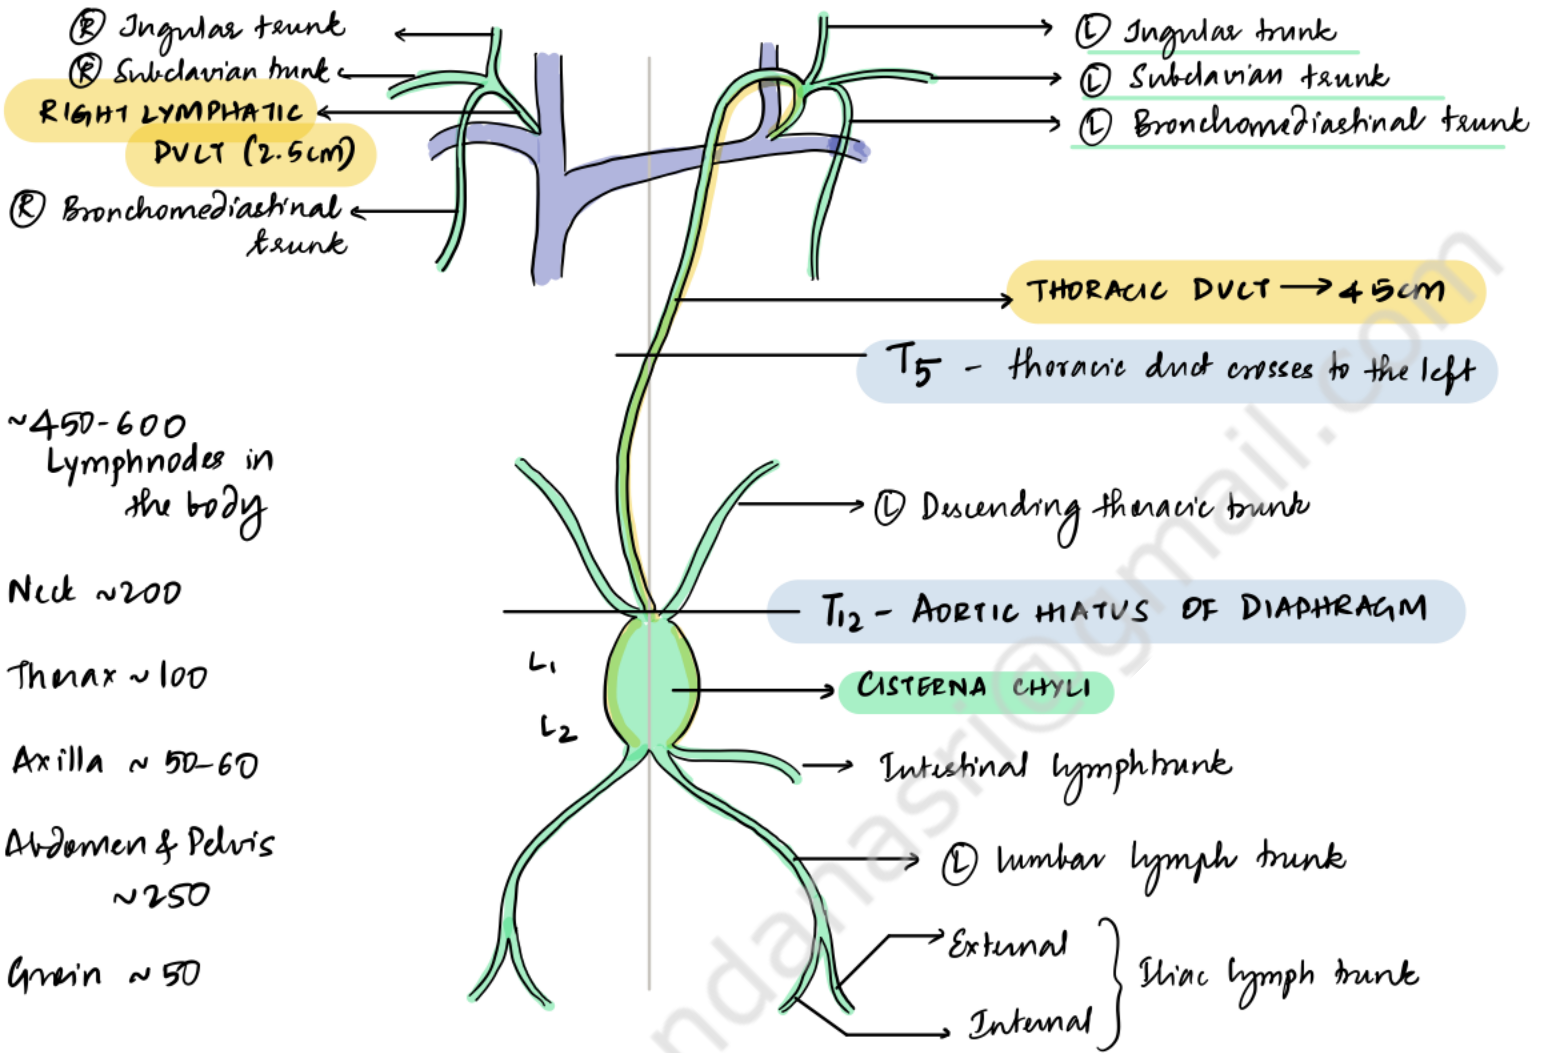 Ⓡ Jugular trunk
Ⓡ Subclavian trunk
RIGHT LYMPHATIC
DUCT (2.5cm)
Ⓡ Bronchomediastinal
trunk
Ⓛ Jugular trunk
Ⓛ Subclavian trunk
Ⓛ Bronchomediastinal trunk
THORACIC DUCT → 45cm
T5 - thoracic duct crosses to the left
~450-600
Lymphnodes in
the body
Neck ~200
Thorax ~100
Axilla ~ 50-60
Abdomen & Pelvis
~250
Groin ~50
Ⓛ Descending thoracic trunk
T12 - AORTIC HIATUS OF DIAPHRAGM
L1
L2
CISTERNA CHYLI
Intestinal lymphtrunk
Ⓛ lumbar lymph trunk
External
Internal
Iliac lymph trunk
ndanasri@gmail.com